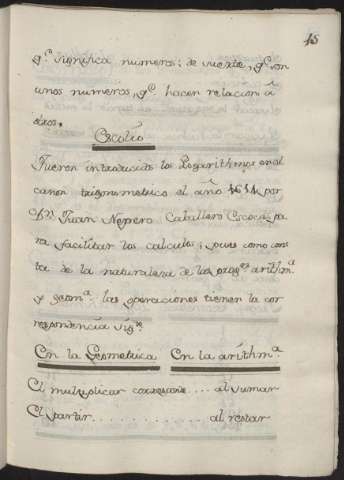 15
q.e significa numeros; de suerte, q.e son
unos numeros, q.e hacen relacion â
otros.
Escolio
Fueron introducidos los Logarithmos en el
canon trigonometrico el año 1614 por
Juan Nepero Caballero Escoces, pa
ra facilitar los calculos; pues como cons
ta de la naturaleza de las prog.es arithm.a
y geom.a las operaciones tienen la cor
respondencia sig.te
En la Geometrica En la arithm.a
El multiplicar corresponde .... al sumar
El partir .............. al restar